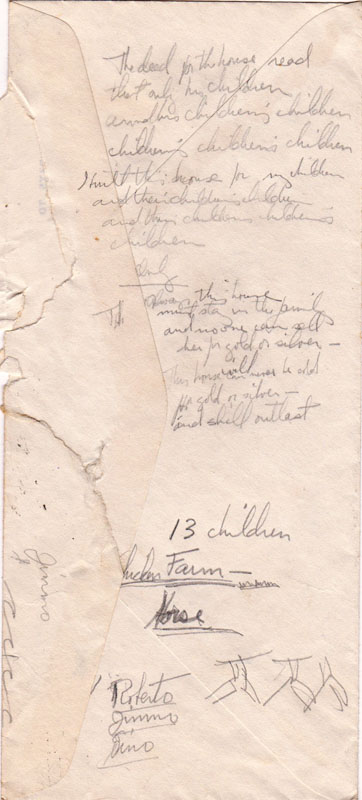 The deed for the house read
that only his children
and his children's children
children's children's children
I built this house for my children
and their children's children
and their children's children's
children
Only
This house
must stay in the family
and no one can sell
her for gold or silver —
This house will never be sold
for gold or silver —
and shall outlast
13 children
Chicken Farm —
Horse
Roberto
Jimmo
Dino